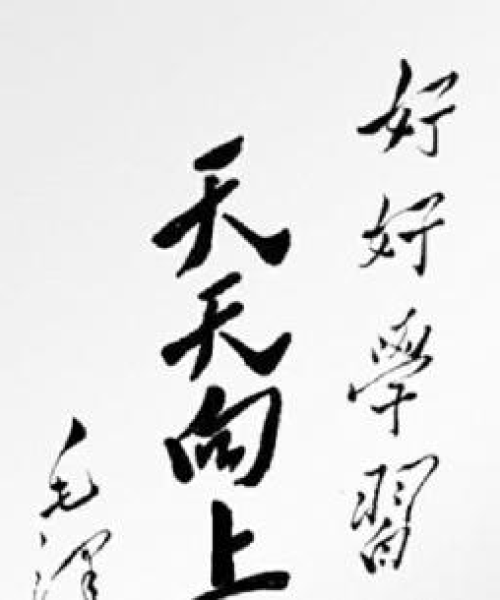 好好學習
天天向上
毛澤